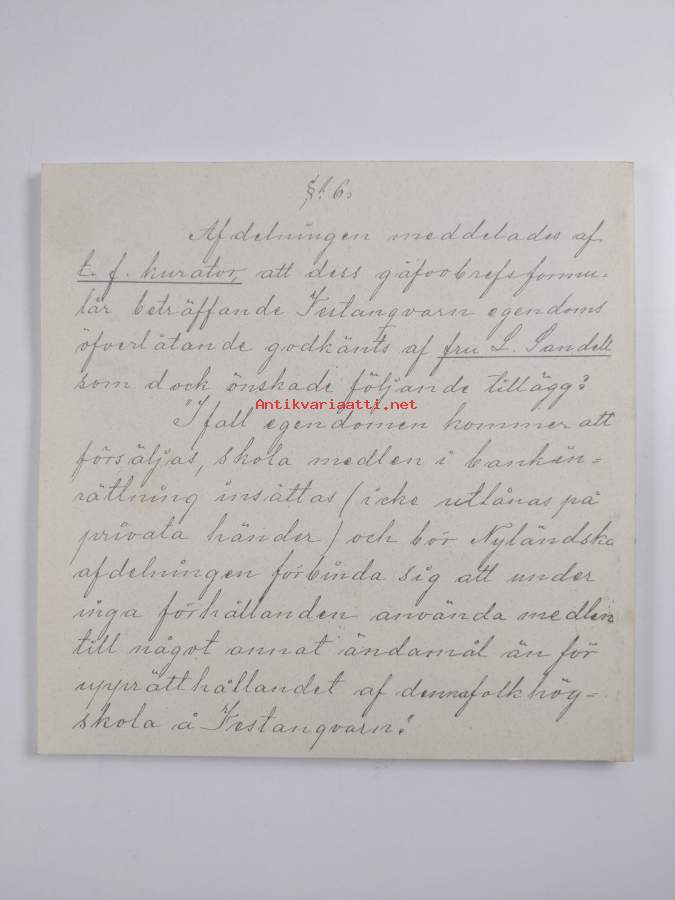 § 6.
Afdelningen meddelades af
t. f. kurator, att dess gåfvobrefsformu-
lär beträffande Vestanqvarn egendoms
öfverlåtande godkänts af fru L. Sandell
som dock önskade följande tillägg:
Antikvariaatti.net
"I fall egendomen kommer att
försäljas, skola medlen i bankin-
rättning insättas (icke utlånas på
privata händer) och bör Nyländska
afdelningen förbinda sig att under
inga förhållanden använda medlen
till något annat ändamål än för
upprätthållandet af denna folkhög-
skola å Vestanqvarn."